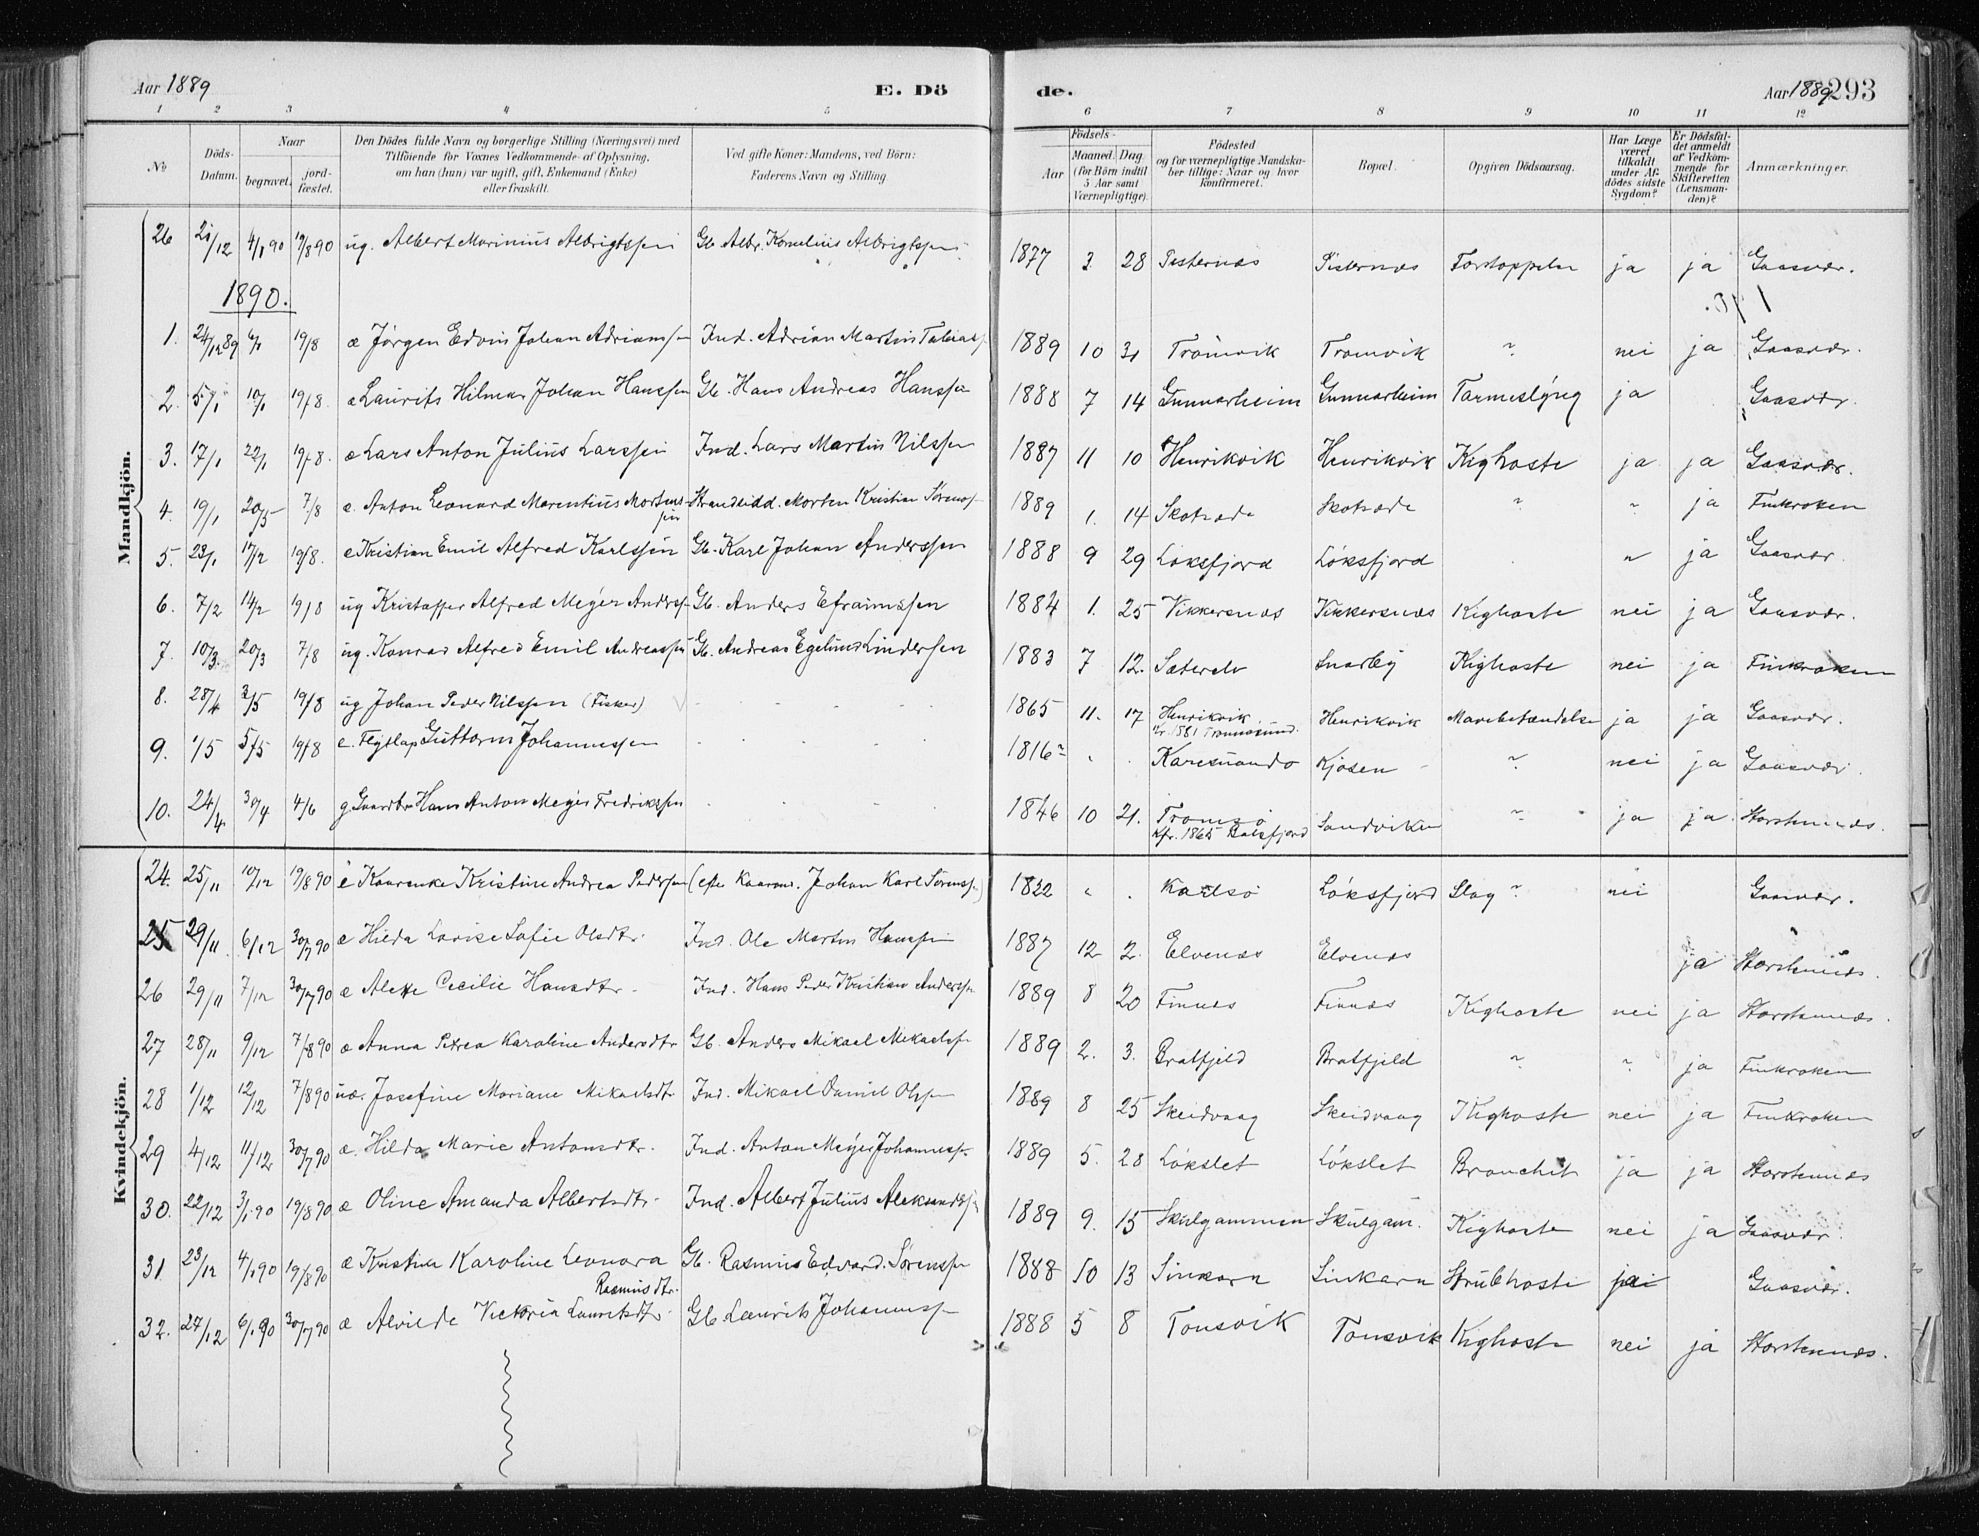 Aar 1889 E. Dö de. Aar 1889 293
1 2 3 4 5 6 7 8 9 10 11 12
No Döds-Datum. Naar begravet. jord-fæstet. Den Dödes fulde Navn og borgerlige Stilling (Næringsvei) med Tilföiende for Voxnes Vedkommende af Oplysning, om han (hun) var ugift, gift, Enkemand (Enke) eller fraskilt. Ved gifte Koner: Mandens, ved Börn: Faderens Navn og Stilling Födsels- Aar Maaned. Dag. (for Börn indtil 5 Aar samt Værnepligtige). Födested og for værnepligtige Mandskaber tillige: Naar og hvor konfirmeret. Bopæl. Opgiven Dödsaarsag. Har Læge været tilkaldt under Afdödes sidste Sygdom? Er Dödsfaldet anmeldt af Vedkommende for Skifteretten (Lensmanden)? Anmærkninger.
Mandkjön.
26 21/12 4/1 90 19/8 90 ug. Albert Marinius Albrigtssen Gb. Albr. Kornelius Albrigtssen 1877 3 28 Sisternæs Sisternæs Forstoppelse ja ja Gaasvær.
1890.
1. 24/12 89 6/1 19/8 æ Jørgen Edvin Johan Adrianssen Ind. Adrian Martin Tobiass 1889 10 31 Tromvik Tromvik " nei ja Gaasvær.
2. 5/1 10/1 19/8. æ Laurits Hilmar Johan Hanssen Gb. Hans Andreas Hanssen 1888 7 14 Gunnarheim Gunnarheim Tarmeslyng ja Gaasvær.
3. 17/1 22/1 19/8. æ Lars Anton Julius Larssen Ind. Lars Martin Nilssen 1887 11 10 Henrikvik Henrikvik Kighoste ja ja Gaasvær.
4. 19/1 20/5 7/8 æ. Anton Leonard Marentius Mortenssen Strandsidd. Morten Kristian Sørenss 1889 1. 14 Skotræde Skotræde " " ja Finkroken
5. 23/1 17/2 19/8. æ Kristian Emil Alfred Karlssen Gb. Karl Johan Anderssen 1888 9 29 Løksfjord Løksfjord " ja Gaasvær.
6. 7/2 14/2 19/8 ug Kristoffer Alfred Mejer Anderss Gb. Anders Efraimssen 1884 1. 25 Vikkersnæs Vikkersnæs Kighoste nei ja Gaasvær.
7. 10/3. 20/3 7/8 ug. Konrad Alfred Emil Andreassen Gb. Andreas Egelius Linderssen 1883 7 12. Sæterelv Snarby Kighoste nei ja Finkroken
8. 28/4 3/5 19/8 ug Johan Peder Nilssen (Fisker) 1865 11. 17 Henrikvik Kr. 1881 Tromøsund. Henrikvik Mavebetændelse ja ja Gaasvær.
9. 1/5 5/5 19/8 e. Flytlap Guttorm Johannessen 1816 " Karesuando Kjosen " nei ja Gaasvær.
10. 24/4 30/4 4/6 g Gaardbr Hans Anton Mejer Fredrikssen 1846 10 21. Tromsø Kfr. 1865 Balsfjord Sandviken " ja ja. Storstennæs.
Kvindekjön.
24. 25/11 10/12 19/8 90 e Kaarenke Kristine Andrea Pedersen (efter Kaarm. Johan Karl Sørenss) 1822 " . Karlsø Løksfjord Slag " nei Gaasvær.
25 29/11 6/12 30/7 90 æ Hilda Lovise Sofie Olsdtr. Ind. Ole Martin Hanssen 1887 12 2. Elvenæs Elvenæs ja Storstennæs.
26 29/11 7/12 30/7 90 æ Alette Cecilie Hansdtr. Ind. Hans Peder Kristian Anderss 1889 8 20 Finnæs Finnæs Kighoste nei ja Storstennæs.
27 28/11 9/12 7/8 90 æ Anna Petrea Karoline Andersdtr Gb. Anders Mikael Mikaels 1889 2. 3. Bratfjeld Bratfjeld " " ja Finkroken
28 1/12 12/12 7/8 90 uæ. Josefine Mariane Mikaelsdtr Ind. Mikael Daniel Olss 1889 8 25 Skeidvaag Skeidvaag Kighoste nei ja Finkroken
29 4/12 11/12 30/7 90 æ. Hilda Marie Antonsdtr. Ind. Anton Mejer Johanness 1889 5. 28 Løkslet Løkslet Bronchit ja ja Storstennæs
30. 22/12 3/1 90 19/8 90 æ Oline Amanda Albertsdtr. Ind. Albert Julius Aleksanders 1889 9. 15 Skulgammen Skulgam. Kighoste nei ja Gaasvær.
31. 23/12 4/1 90 19/8 90 æ Kristine Karoline Leonora Rasmusdtr. Gb. Rasmus Edvard Sørenss 1888 10 13 Sinkarn Sinkarn Strubhoste Gaasvær.
32. 27/12 6/1 90 30/7 90 æ Alvilde Victoria Lauritsdtr. Gb. Laurits Johanness 1888 5 8 Tonsvik Tonsvik Kighoste nei ja Storstennæs.